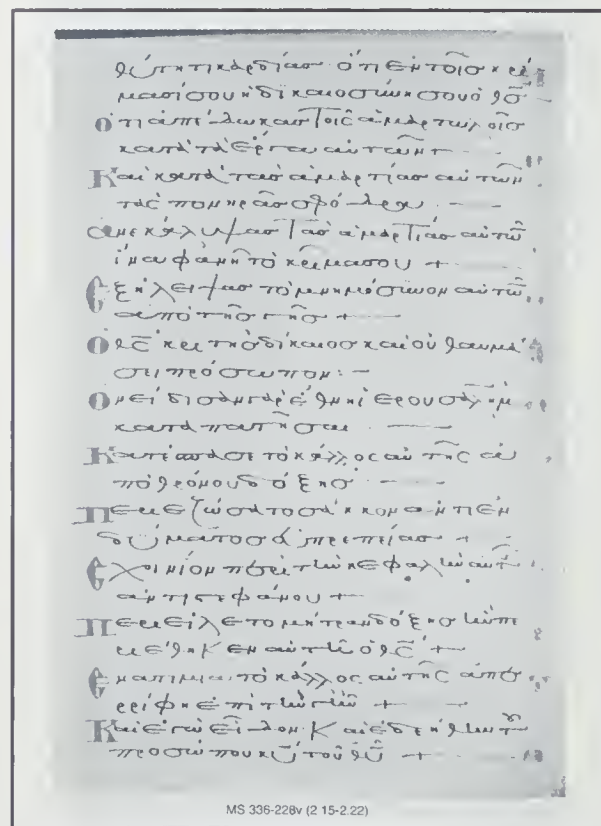 θύτητι καρδίας ὅτι ἐν τοῖς κρί
μασί σου ἡ δικαιοσύνη σου ὁ θς̅
ὅτι ἀπέδωκας τοῖς ἁμαρτωλοῖς
κατὰ τὰ ἔργα αὐτῶν +
Καὶ κατὰ τὰς ἁμαρτίας αὐτῶν
τὰς πονηρὰς σφόδρα
ἀνεκάλυψας τὰς ἁμαρτίας αὐτῶ
ἵνα φανῆ τὸ κρίμα σου +
Ἐξήλειψας τὸ μνημόσυνον αὐτῶ
ἀπὸ τῆς γῆς +
Ὁ θς̅ κριτὴς δίκαιος καὶ οὐ θαυμά
σει πρόσωπον :
Ὀνείδισαν γὰρ ἔθνη ἱερουσαλὴμ
καταπατῆσαι
Κατέσπασε τὸ κάλλος αὐτῆς ἀ
πὸ θρόνου δόξης
Περιεζώσατο σάκκον ἀντὶ ἐν
δύματος εὐπρεπείας +
Σχοινίον περὶ τὴν κεφαλὴν αὐτ
ἀντὶ στεφάνου +
Περιείλετο μίτραν δόξης ἣν πε
ριέθηκεν αὐτῆ ὁ θς̅ +
Ἐν ἀτιμία τὸ κάλλος αὐτῆς ἀπε
ρρίφη ἐπὶ τὴν γῆν +
Καὶ ἐγὼ εἶδον καὶ ἐδεήθην τοῦ
προσώπου κυ̅ τοῦ θυ̅ +
MS 336-228v (2 15-2.22)